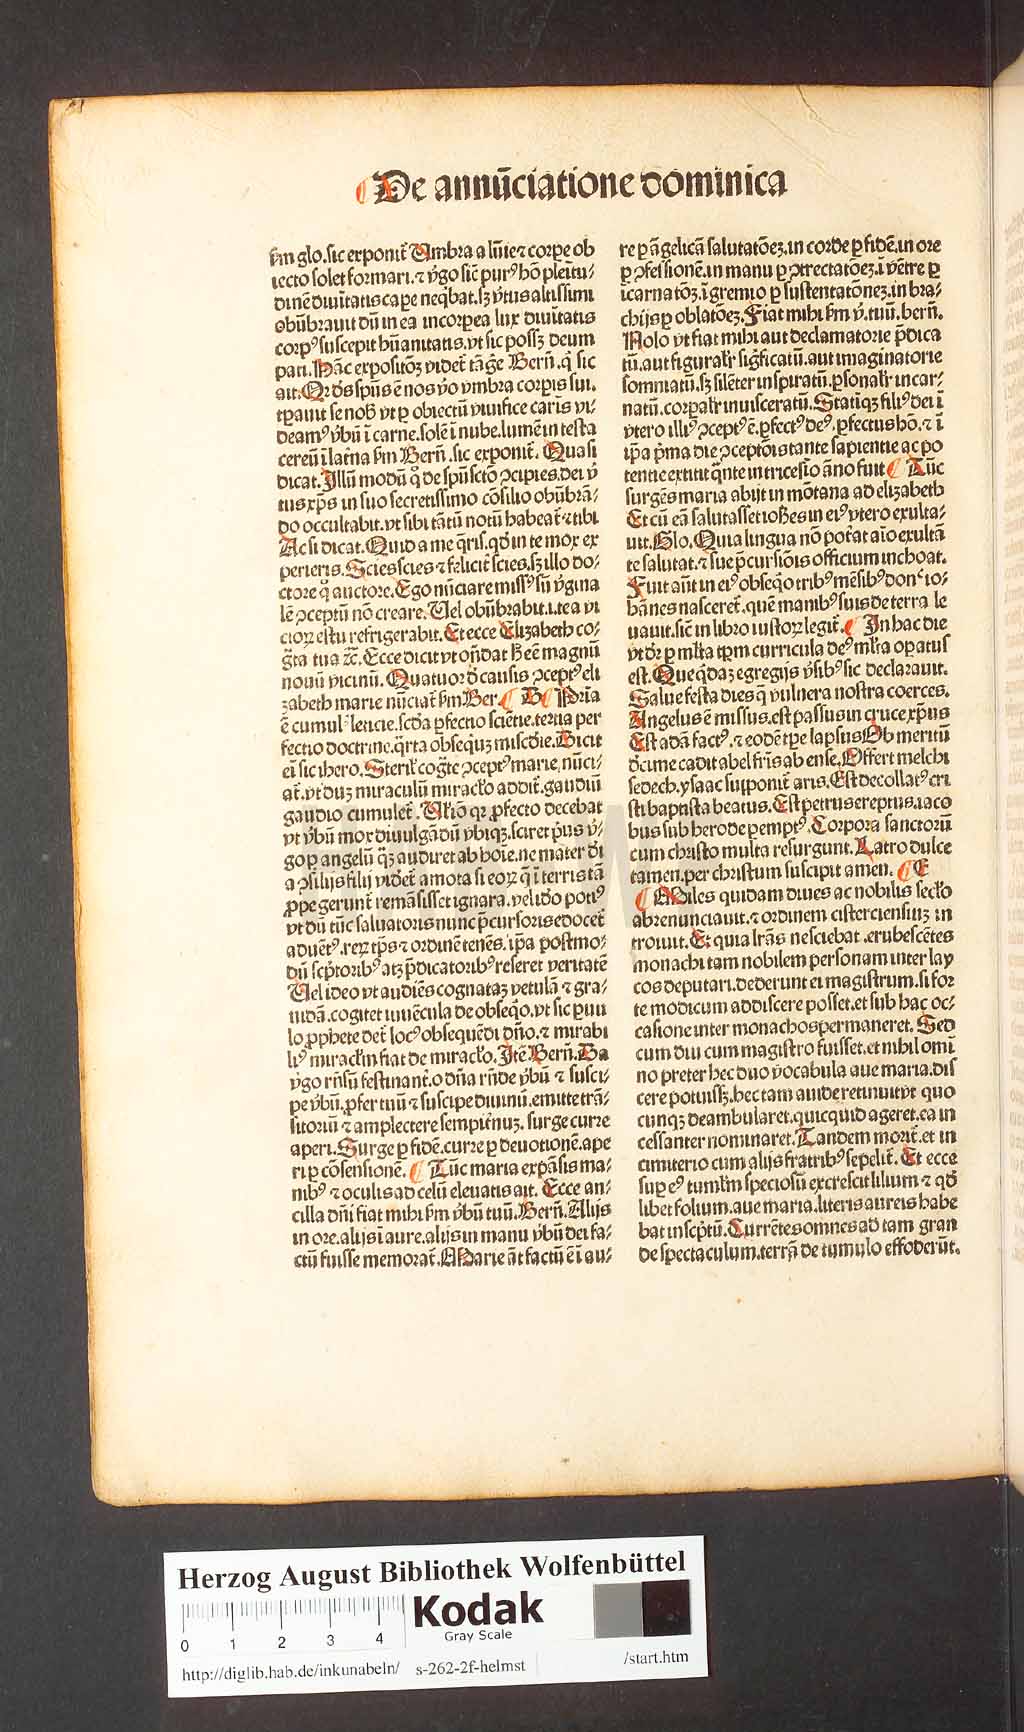 De annūciatione dominica
ſm glo. ſic exponit̄ Umbra a lūie ⁊ corpe ob
iecto ſolet formari. ⁊ v̄go ſic̄ purꝰ hō plēitu⸗
dinē diuītatis cape neq̄bat. ſꝫ v̄tus altiſſimi
obūbrauit dū in ea incorpea lux diuītatis
corpꝰ ſuſcepit hūanitatis. vt ſic poſſꝫ deum
pati. Hāc expoſitōꝫ videt̄ tāḡe Bern̄. q̄ ſic
ait. Qꝛ dꝰs ſpūs ē nos v̄o vmbra corpis ſui.
tꝑauit ſe nob̄ vt ꝑ obiectū viuifice carīs vi⸗
deamꝰ v̄bū ī carne. ſolē ī nube. lumē in teſta
cereū ī lat̄na ſm Bern̄. ſic exponit̄. Quaſi
dicat. Illū modū q̊ de ſpū ſctō ↄcipies. dei v̄
tus xp̄s in ſuo ſecretiſſimo cōſilio obūbrā⸗
do occultabit. vt ſibi tātū notū habeat̄ ⁊ tibi
Ac ſi dicat. Quid a me q̄ris. qd̄ in te mox ex
perieris. Scies ſcies ⁊ felicit̄ ſcies. ſꝫ illo do⸗
ctore q̊ auctore. Ego nūciare miſſꝰ ſū v̄gina
lē ↄceptū nō creare. Uel obūbrabit. i. te a vi
cioꝝ eſtu refrigerabit. Et ecce Elizabeth co⸗
ḡta tua ꝛc̄. Ecce dicit vt on̄dat h̄ eē magnū
nouū vicinū. Quatuor d̄ cauſis ↄceptꝰ eli
zabeth marie nūciat̄ ſm Ber. B Pria
ē cumulꝰ leticie. ſcd̄a ꝑfectio ſciētie. terna per
fectio doctrine. q̄rta obſequiꝫ miſcd̄ie. Dicit
ei ſic ibero. Sterilꝭ coḡte ↄceptꝰ marie. nūci⸗
at̄. vt duꝫ miraculū miraclo addit̄. gaudiū
gaudio cumulet̄. Ut iō qꝛ ꝓfecto decebat
vt v̄bū mox diuulgādū vbiqꝫ. ſciret p̄us v̄⸗
go ꝑ angelū q̄ꝫ audiret ab hoīe. ne mater d̄i
a ↄſilijs filij videt̄ amota ſi eoꝝ q̄ ī terris tā
ꝓpe gerunt̄ remāſiſſet ignara. vel iō potiꝰ
vt dū tūc ſaluatoris nunc p̄curſoris edocet̄
aduētꝰ. reꝝ tp̄s ⁊ ordinē tenēs. ip̄a poſtmo⸗
dū ſcp̄toribꝰ atqꝫ p̄dicatoribꝰ reſeret veritatē
Uel ideo vt audiēs cognataꝫ vetulā ⁊ gra⸗
uidā. cogitet iuuēcula de obſeq̄o. vt ſic puu
lo ꝓphete det̄ locꝰ obſequēdi dn̄o. ⁊ mirabi
liꝰ miracl̄m fiat de miraclo. Itē Bern̄. Da
v̄go rn̄ſū feſtinant̄. o dn̄a rn̄de v̄bū ⁊ ſuſci⸗
pe v̄bū. ꝓfer tuū ⁊ ſuſcipe diuinū. emitte trā⸗
ſitoriū ⁊ amplectere ſempit̄nuꝫ. ſurge curre
aperi. Surge ꝑ fidē. curre ꝑ deuotionē. ape
ri ꝑ cōſenſionē. Tūc maria expāſis ma⸗
nibꝰ ⁊ oculis ad celū eleuatis ait. Ecce an⸗
cilla dn̄i fiat mihi ſm v̄bū tuū. Bern̄. Alijs
in ore. alijs ī aure. alijs in manu v̄bū dei fa⸗
ctū fuiſſe memorat̄. Marie āt factū ē ī au⸗
re ꝑ āgelicā ſalutatōeꝫ. in corde ꝑ fidē. in ore
ꝑ ↄfeſſionē. in manu ꝑ ↄtrectatōeꝫ. ī vētre ꝑ
īcarnatōꝫ. ī gremio ꝑ ſuſtentatōneꝫ. in bra⸗
chijs ꝑ oblatōeꝫ. Fiat mihi ſm v̄. tuū. bern̄.
Nolo vt fiat mihi aut declamatorie p̄dica
tū. aut figuralr̄ ſiḡficatū. aut imaginatorie
ſomniatū. ſꝫ ſilēter inſpiratū. ꝑſonalr̄ incar⸗
natū. corꝑalr̄ inuiſceratū. Statīqꝫ filiꝰ dei ī
vtero illiꝰ ↄceptꝰ ē. ꝑfectꝰ deꝰ. ꝑfectus hō. ⁊ ī
ip̄a p̄ma die ↄceptōis tante ſapientie ac po
tentie extitit q̄nte in triceſio āno fuit Tūc
ſurgēs maria abijt in mōtana ad elizabeth
Et cū eā ſalutaſſet ioh̄es in eiꝰ vtero exulta⸗
uit. Glo. Quia lingua nō poťat aīo exultā
te ſalutat. ⁊ ſue p̄curſiōis officium inchoat.
Fuit aūt in eiꝰ obſeq̄o tribꝰ mēſibꝰ donc̄ io⸗
hānes naſceret̄. quē manibꝰ ſuis de terra le
uauit. ſic̄ in libro iuſtoꝝ legit̄. In hac die
vt dr̄ ꝑ mlta tꝑm curricula deꝰ mlta opatus
eſt. Que q̄daꝫ egregijs v̄ſibꝰ ſic declarauit.
Salue feſta dies q̄ vulnera noſtra coerces.
Angelus ē miſſus. eſt paſſus in cruce xp̄us
Eſt adā factꝰ. ⁊ eodē tꝑe lapſus Ob meritū
dc̄ime cadit abel frīs ab enſe. Offert melchi
ſedech. yſaac ſupponit̄ aris. Eſt decollatꝰ cri
ſti baptiſta beatus. Eſt petrus ereptus. iaco
bus ſub herode pemptꝰ. Corpora ſanctorū
cum chriſto multa reſurgunt. Latro dulce
tamen. per chriſtum ſuſcipit amen. E
Miles quidam diues ac nobilis ſeclo
abrenunciauit. ⁊ ordinem ciſtercienſiuꝫ in
trouit. Et quia lr̄as neſciebat. erubeſcētes
monachi tam nobilem perſonam inter lay
cos deputari. dederunt ei magiſtrum. ſi for
te modicum addiſcere poſſet. et ſub hac oc⸗
caſione inter monachos permaneret. Sed
cum diu cum magiſtro fuiſſet. et nihil omī
no preter hec duo vocabula aue maria. diſ
cere potuiſſꝫ. hec tam auide retinuit vt quo
cunqꝫ deambularet. quicquid ageret. ea in
ceſſanter nominaret. Tandem morit̄. et in
cimiterio cum alijs fratribꝰ ſepelit̄. Et ecce
ſuꝑ eꝰ tumlm ſpecioſū excreſcit lilium ⁊ qd̄
libet folium. aue maria. literis aureis habe
bat inſcp̄tū. Currētes omnes ad tam gran
de ſpectaculum. terrā de tumulo effoderūt.
Herzog August Bibliothek Wolfenbüttel
0 1 2 3 4
Kodak
Gray Scale
http://diglib.hab.de/inkunabeln/ s-262-2f-helmst /start.htm